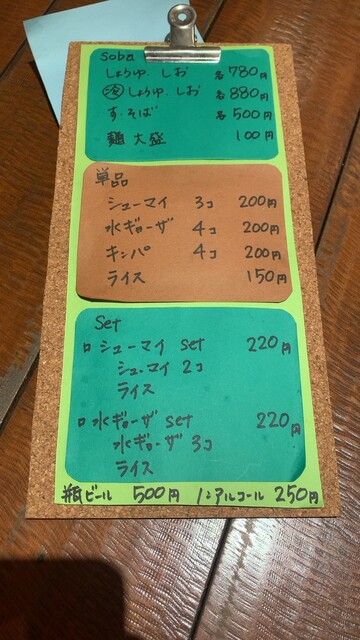 Soba
しょうゆ.しお 各780円
冷しょうゆ.しお 各880円
す.そば 各500円
麺大盛 100円
単品
シューマイ 3コ 200円
水ギョーザ 4コ 200円
キンパ 4コ 200円
ライス 150円
Set
ロ シューマイ set 220円
シューマイ 2コ
ライス
ロ 水ギョーザ set 220円
水ギョーザ 3コ
ライス
瓶ビール 500円 ノンアルコール 250円